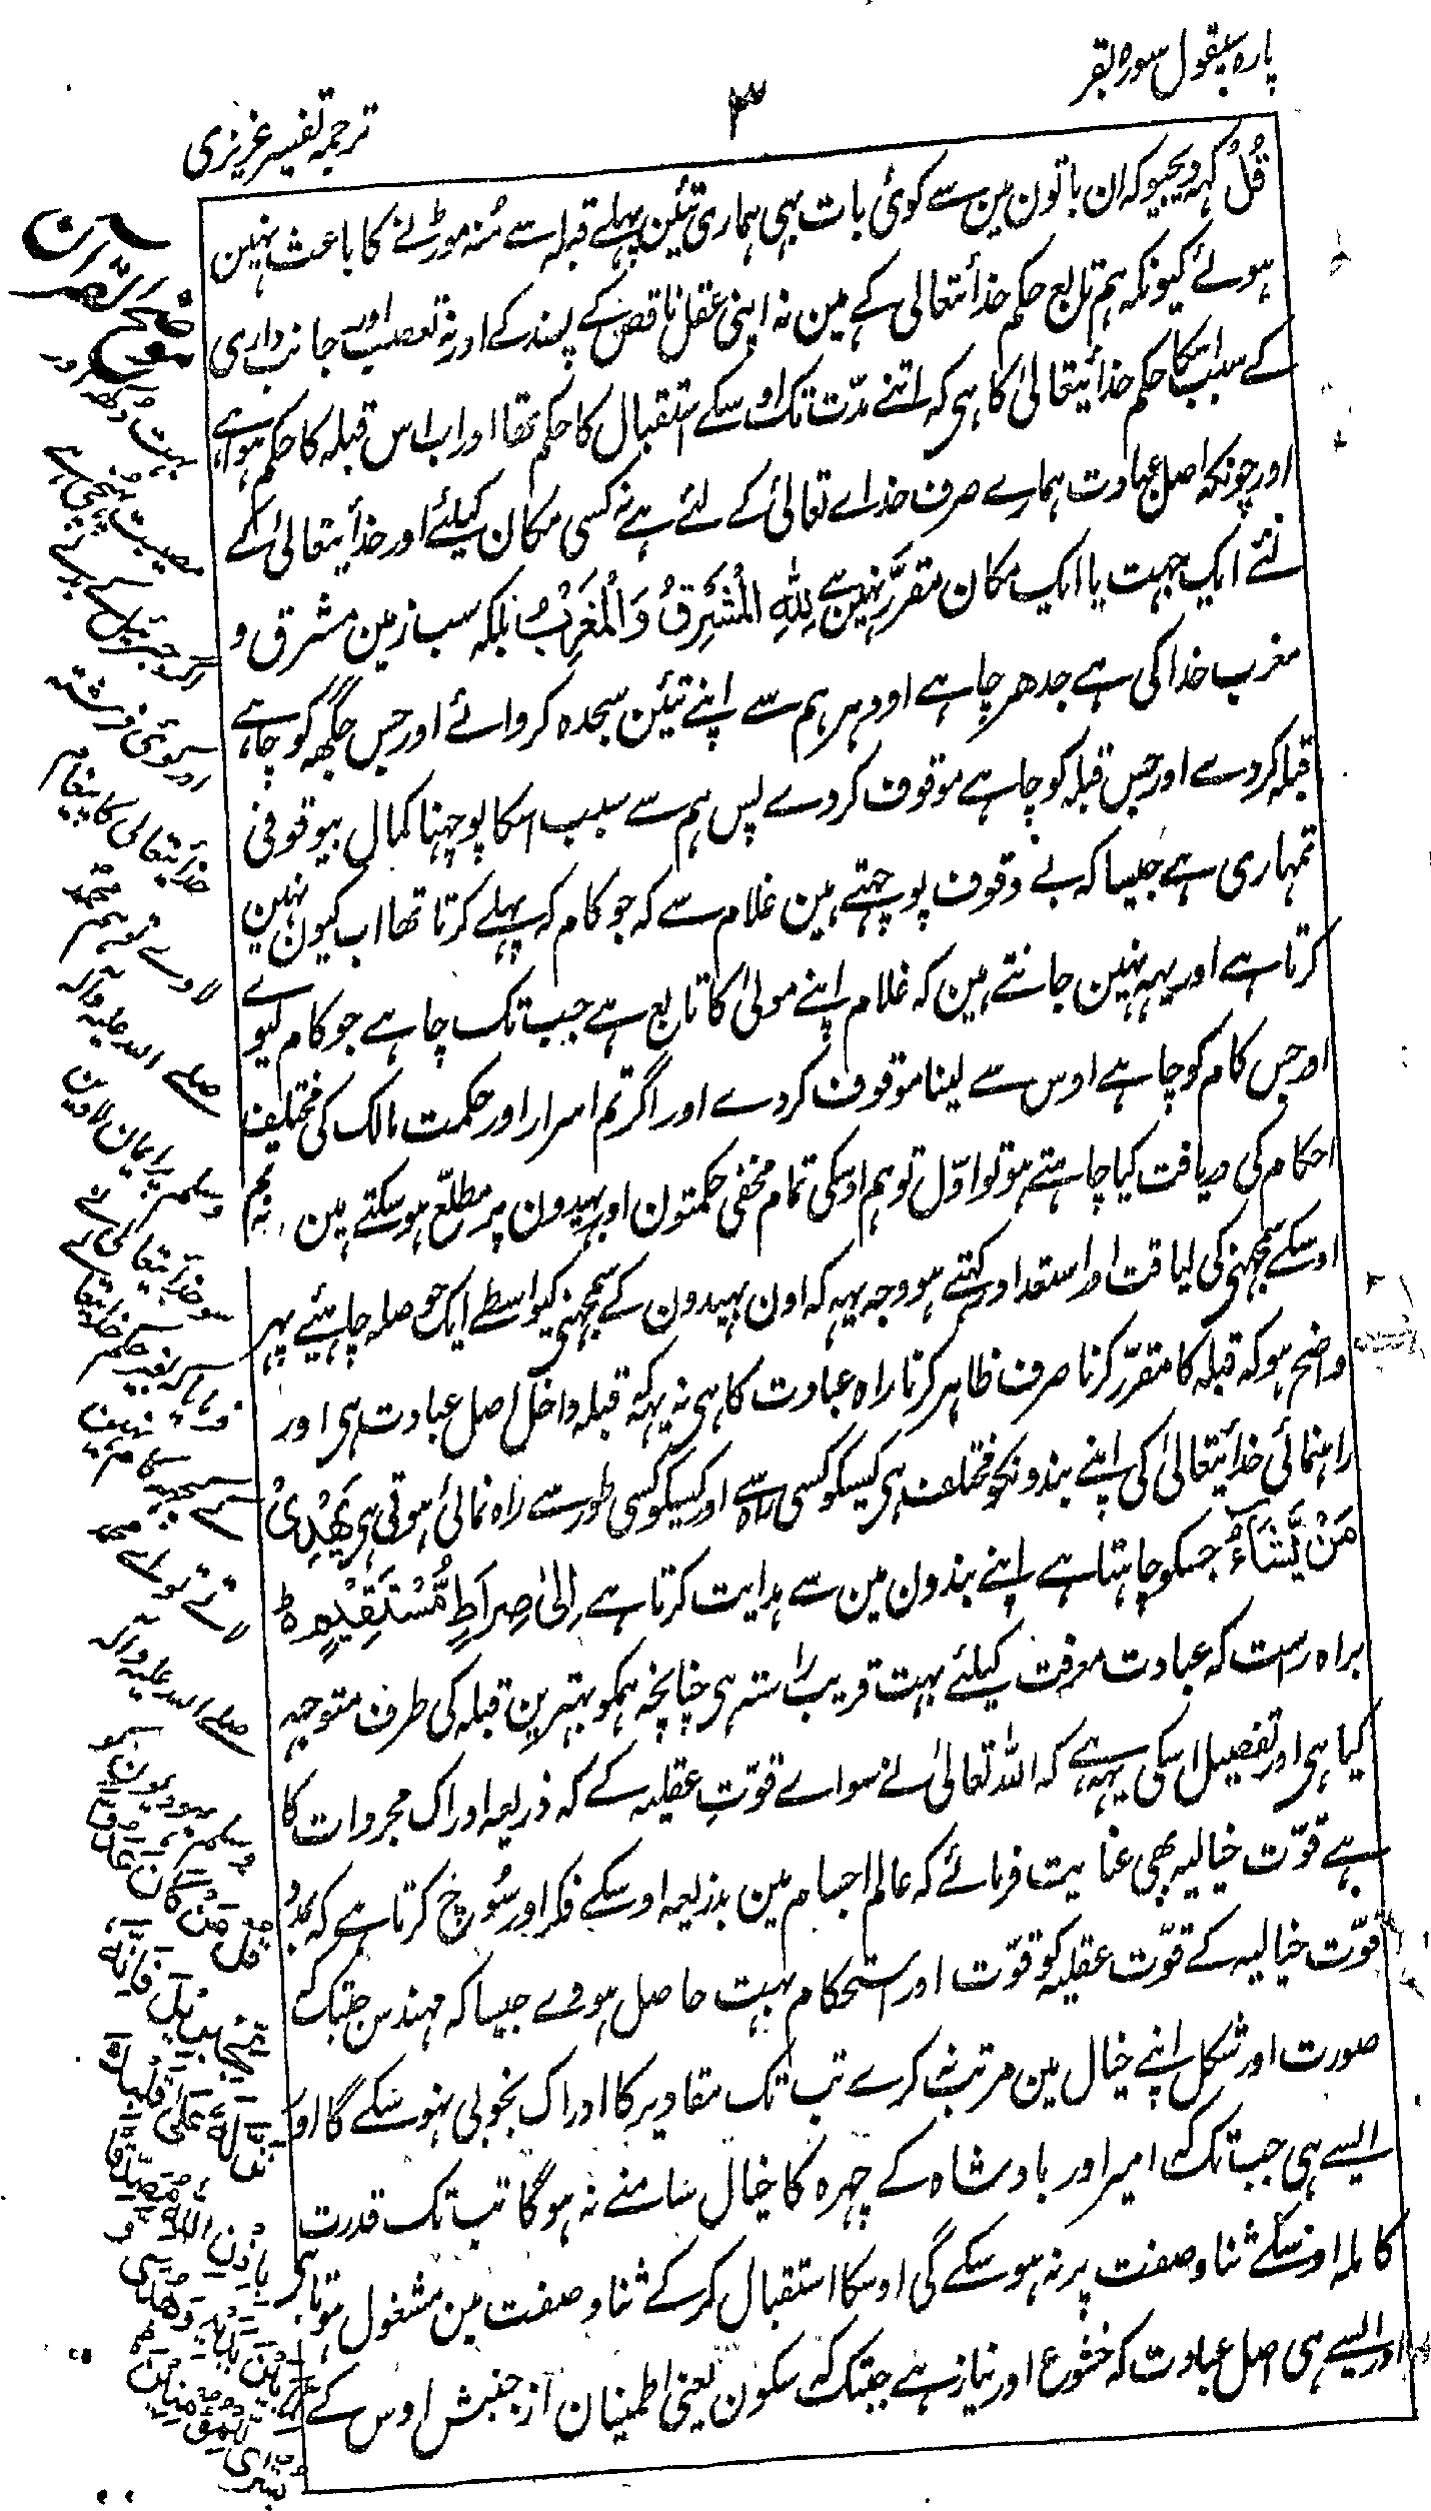 پارہ سیقول سورہ بقر
۳
ترجمہ تفسیر عزیزی
قُلْ کہہ دیجیو کہ ان باتون مین سے کوئی بات بہی ہماری تئین پہلے قبلہ سے مُنہ موڑنے کا باعث نہین
ہوئے کیونکہ ہم تابع حکم خدائیتعالی کے ہین نہ اپنی عقل ناقص کے پسند کے اور نہ تعصب اور جانبداری
کے سبب اسکا حکم خدائیتعالیٰ کا ہی کہ اتنے مدّت تک اوسکے استقبال کا حکم تھا اور اب اس قبلہ کا حکم ہوا ہے
اور چونکہ اصل عبادت ہمارے صرف خداے تعالیٰ کے لئے ہے نہ کسی مکان کیلئے اور خدائیتعالیٰ کے
لئے ایک جہت یا ایک مکان مقرّر نہین ہے لِلّٰہِ الْمُشْرِقُ وَالْمُغْرِبُ بلکہ سب زمین مشرق و
مغرب خدا کی ہے جدھر چاہے اودہر ہم سے اپنے تئین سجدہ کروائے اور جس جگھہ کو چاہے
قبلہ کردے اور جس قبلہ کو چاہے موقوف کردے پس ہم سے سبب اسکا پوچہنا کمال بیوقوفی
تمہاری ہے جیسا کہ بے وقوف پوچہتے ہین غلام سے کہ جو کام کہ پہلے کرتا تھا اب کیون نہین
کرتا ہے اور یہہ نہین جانتے ہین کہ غلام اپنے مولیٰ کا تابع ہے جب تک چاہے جو کام لیوے
اور جس کام کو چاہے اوس سے لینا موقوف کردے اور اگر تم اسرار اور حکمت مالک کی مختلف
احکام کی دریافت کیا چاہتے ہو تو اوّل تو ہم اوسکی تمام مخفی حکمتون اور بہیدون پر مطلّع ہوسکتے ہین نہ تم
اوسکے سمجہنے کی لیاقت اور استعداد رکہتے ہو وجہ یہہ کہ اون بہیدون کے سمجہنے کیواسطے ایک حوصلہ چاہئیے پہر
واضح ہو کہ قبلہ کا مقرّر کرنا صرف ظاہر کرنا راہ عبادت کا ہی نہ یہہ کہ قبلہ داخل اصل عبادت ہی اور
راہنمائی خدائیتعالیٰ کی اپنے بندونکو مختلف ہی کسیکو کسی راہ سے اور کسیکو کسی طور سے راہ نمائی ہوتی ہی یَھْدِیْ
مَنْ یَّشَآءُ جسکو چاہتا ہے اپنے بندون مین سے ہدایت کرتا ہے اِلیٰ صِرَاطٍ مُّسْتَقِیْمٍ ط
براہ راست کہ عبادت معرفت کیلئے بہت قریب راستہ ہی چنانچہ ہمکو بہترین قبلہ کی طرف متوجہ
کیا ہی اور تفصیل اسکی یہہ ہے کہ اللہ تعالیٰ نے سواے قوّتِ عقلیہ کے کہ ذریعہ ادراک مجردات کا
ہے قوّت خیالیہ بھی عنایت فرمائے کہ عالم اجسام مین بذریعہ اوسکے فکر اور سُوچ کرتا ہے کہ بمدد
قوّت خیالیہ کے قوّت عقلیہ کو قوّت اور استحکام بہت حاصل ہووے جیسا کہ مہندس جبتک کہ
صورت اور شکل اپنے خیال مین مرتب نہ کرے تب تک مقادیر کا ادراک بخوبی نہوسکے گا اور
ایسے ہی جب تک کہ امیر اور بادشاہ کے چہرہ کا خیال سامنے نہ ہوگا تب تک قدرت
کاملہ اوسکے ثنا و صفت پر نہ ہوسکے گی اوسکا استقبال کرکے ثنا و صفت مین مشغول ہوتا ہی
اور ایسے ہی اصل عبادت کہ خشوع اور نیاز ہے جبتک کہ سکون یعنی اطمینان از جنبش اوس کے
موضح القرآن
مصیبت پہنچی ہے
اور کوئی فرشتہ
خدائیتعالی کا پیغامبر
لاوے تو ہم محمد
صلے اللہ علیہ وآلہ
وسلم پر ایمان لاوین
سو خدائیتعالی نے
فرمایا کہ بغیر حکم خدائیتعالی
کے سمجہہ کام نہین
کرتے تو اے محمد
صلے اللہ علیہ وآلہ
وسلم یہودیون کو
قُلْ مَنْ کَانَ عَدُوًّا
لِّجِبْرِیْلَ فَاِنَّہٗ
نَزَّلَہٗ عَلٰی قَلْبِکَ
بِاِذْنِ اللّٰہِ مُصَدِّقًا
لِّمَا بَیْنَ یَدَیْہِ وَھُدًی وَّ
بُشْرٰی لِلْمُؤْمِنِیْنَ